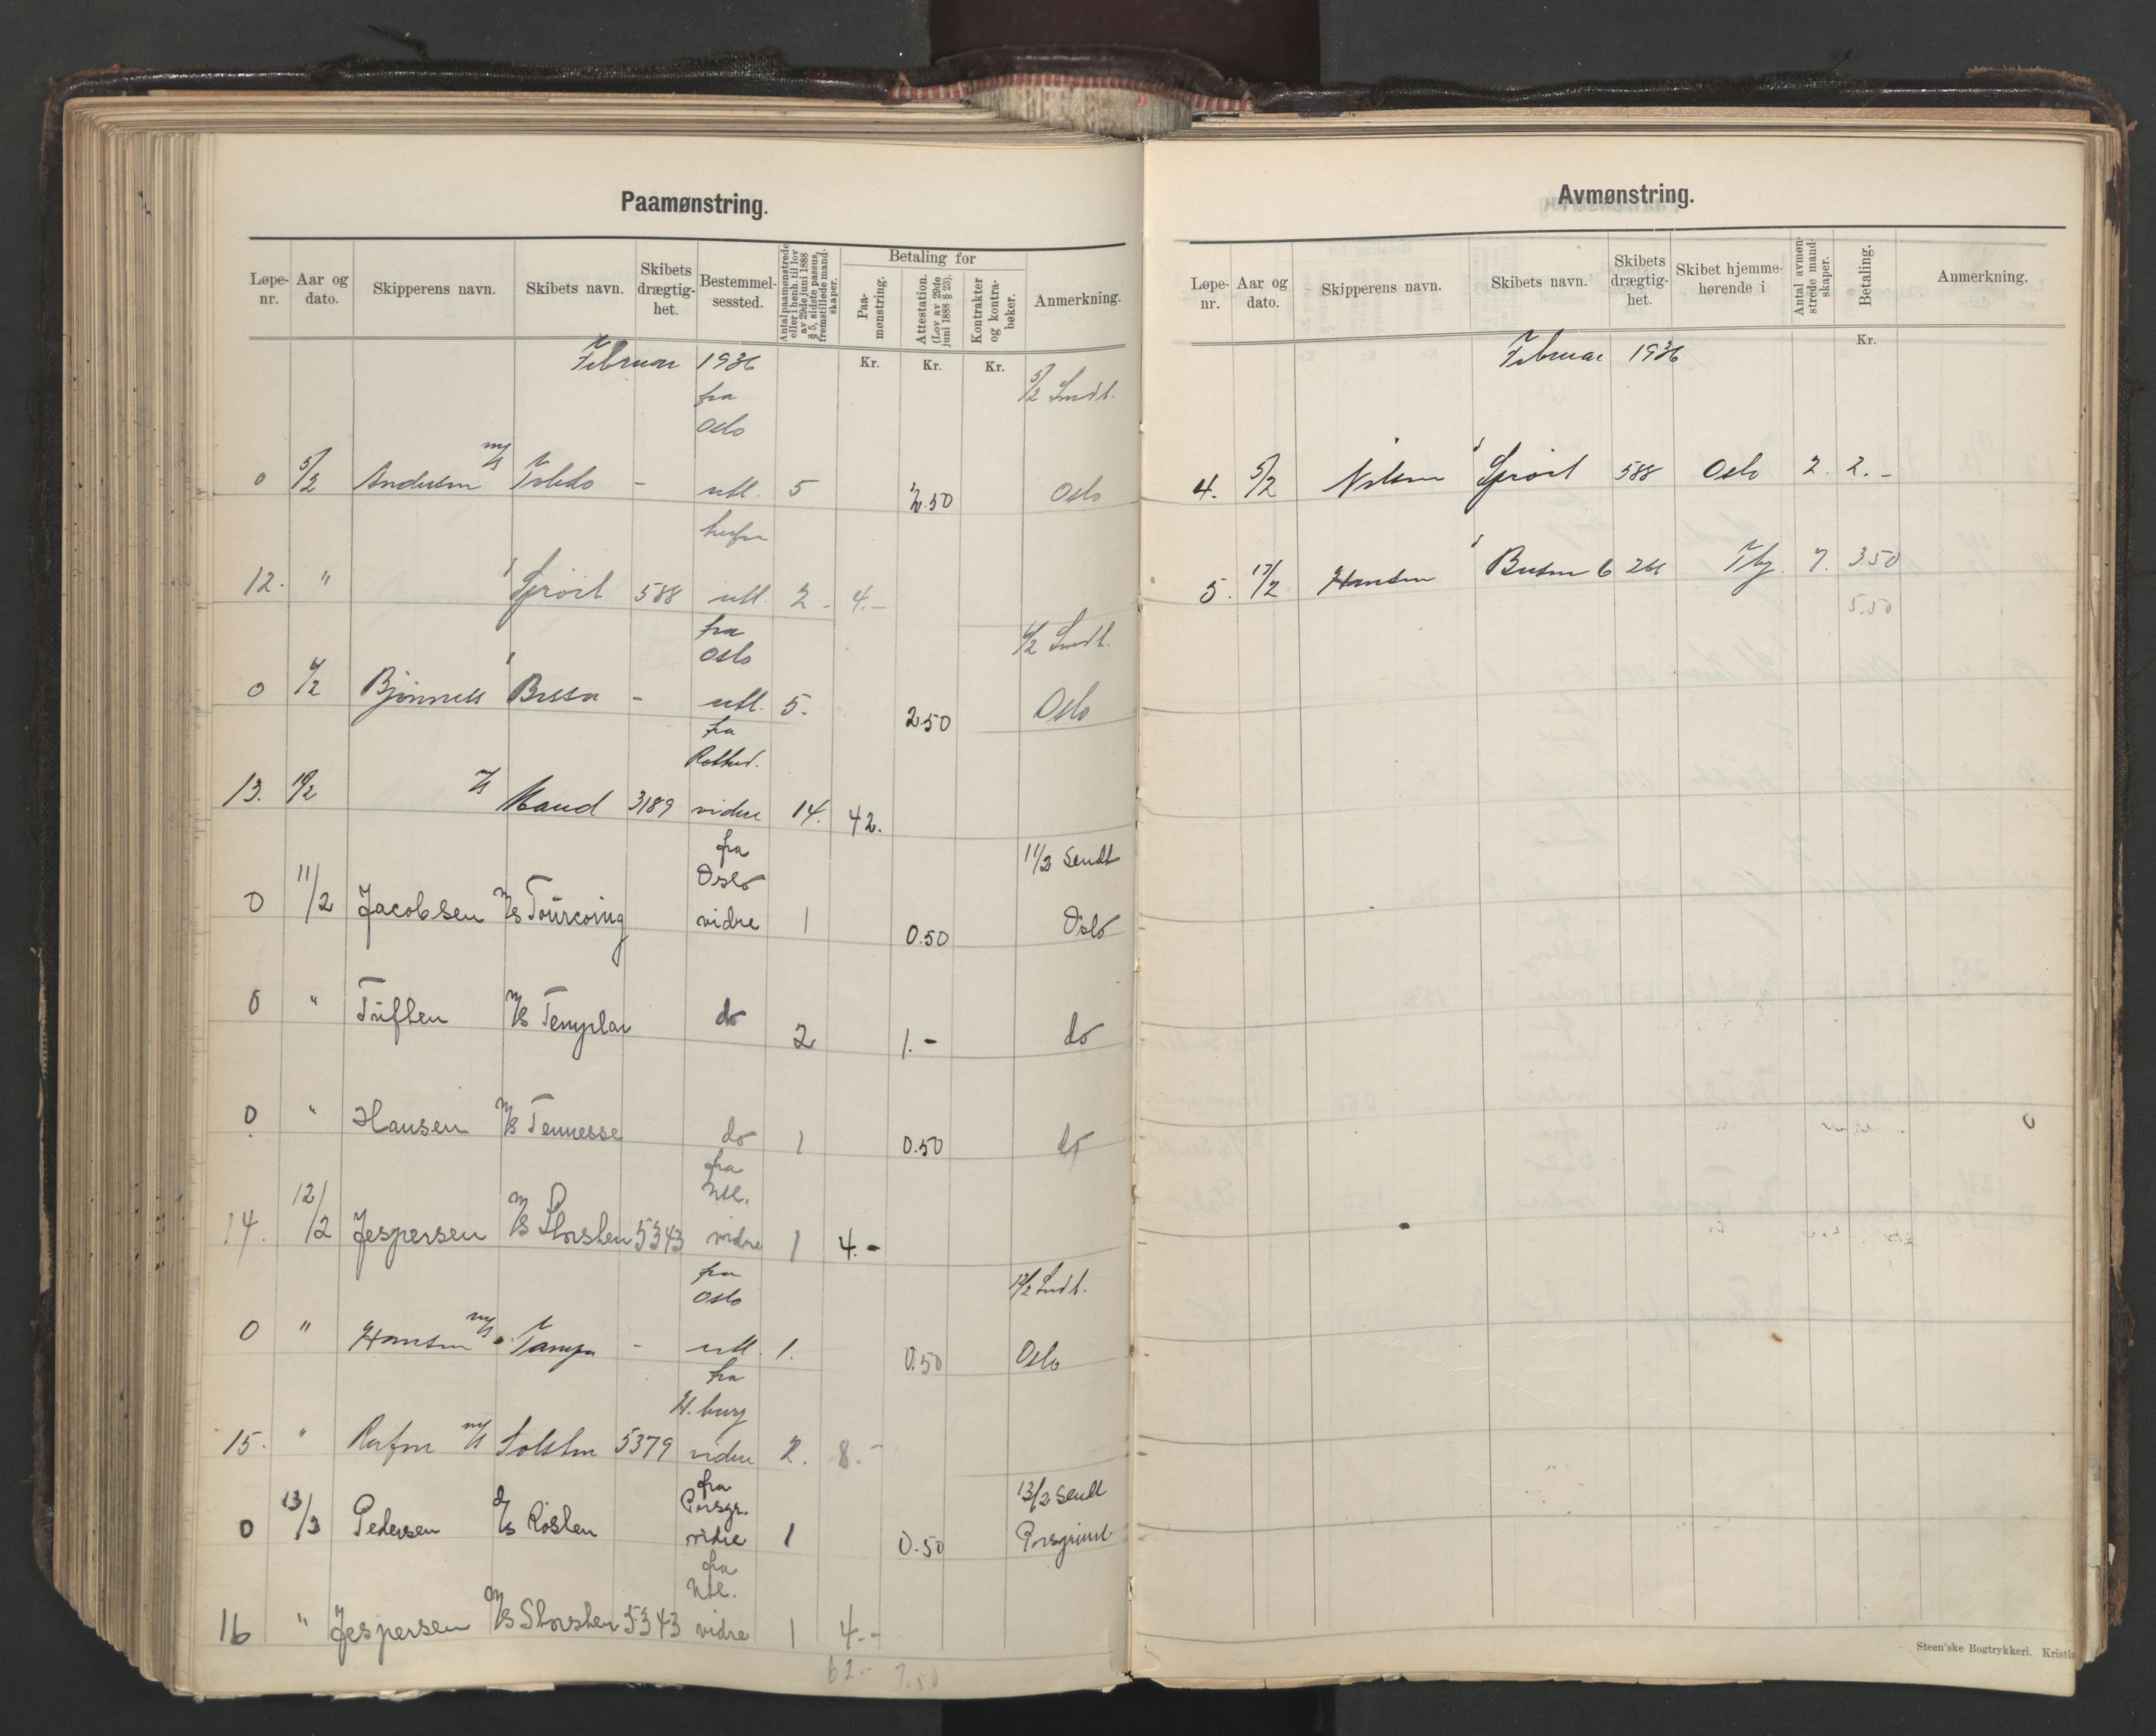 Paamønstring.
Løpe-nr. Aar og dato. Skipperens navn. Skibets navn. Skibets drægtig-het. Bestemmel-sessted. Antal paamønstrede eller i henh. til lov av 29de juni 1888 § 5, sidste passus, fremstillede mand-skaper. Betaling for Paa-mønstring. Attestation. (Lov av 29de juni 1888 § 23). Kontrakter og kontra-bøker. Anmerkning.
Kr. Kr. Kr.
Februar 1936
fra 5/2 Sendt.
Oslo
0 5/2 Andersen m/s Toledo - utl. 5 2.50 Oslo
herfra
12. " Sprøit 588 utl. 2 - 4.-
fra
Oslo 6/2 Sendt.
0 6/2 Bjønness Bessa - utl. 5. 2.50 Oslo
fra
Rotterd.
13. 10/2 m/s Maud 3189 vidre 14. 42.
fra 11/2 Sendt
Oslo
0 11/2 Jacobsen m/s Tourcoing vidre 1 0.50 Oslo
0 " m/s Templar do 2 1.- do
0 " Hansen m/s Tennesse do 1 0.50 do
fra
Utl.
14. 12/2 Jespersen m/s Storsten 5343 vidre 1 4.-
fra 12/2 Sendt.
Oslo
0 " Hansen m/s Tampa - utl. 1. 0.50 Oslo
fra
H.burg
15. " m/s Solsten 5379 vidre 2. 8.-
fra 13/2 Sendt
Porsgr.
0 13/3 Pedersen d/s Rösten vidre 1 0.50 Porsgrund
fra
Utl.
16 " Jespersen m/s Storsten 5343 vidre 1 4.-
62.- 7.50
Avmønstring.
Løpe-nr. Aar og dato. Skipperens navn. Skibets navn. Skibets drægtig-het. Skibet hjemme-hørende i Antal avmøn-strede mand-skaper. Betaling. Anmerkning.
Kr.
Februar 1936
4. 5/2 Nilsen Sprøit 588 Oslo 2. 2.-
5. 17/2 Hansen Busen 6 266 Tbg. 7. 3.50
5.50
Steen'ske Bogtrykkeri. Kristia